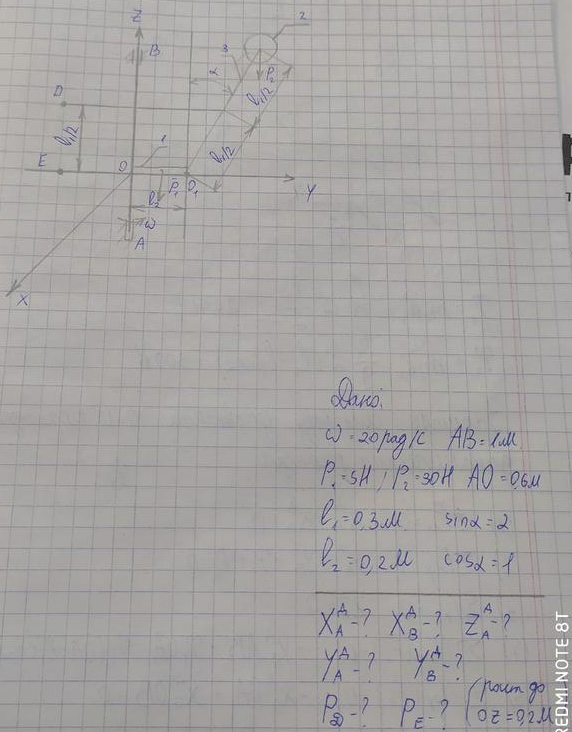 Z
B
2
3
α
P₂
D
l₁/2
l₁/2
l₁/2
1
E
O
P̄₁
O₁
Y
l₂
ω
A
X
Дано:
ω = 20 рад/с AB = 1м
P₁ = 5Н ; P₂ = 30Н AO = 0,6м
l₁ = 0,3м sinα = 2
l₂ = 0,2м cosα = 1
X_A^Д - ? X_B^Д - ? Z_A^Д - ?
Y_A^Д - ? Y_B^Д - ?
P_D - ? P_E - ? до
OZ = 0,2м
REDMI NOTE 8T